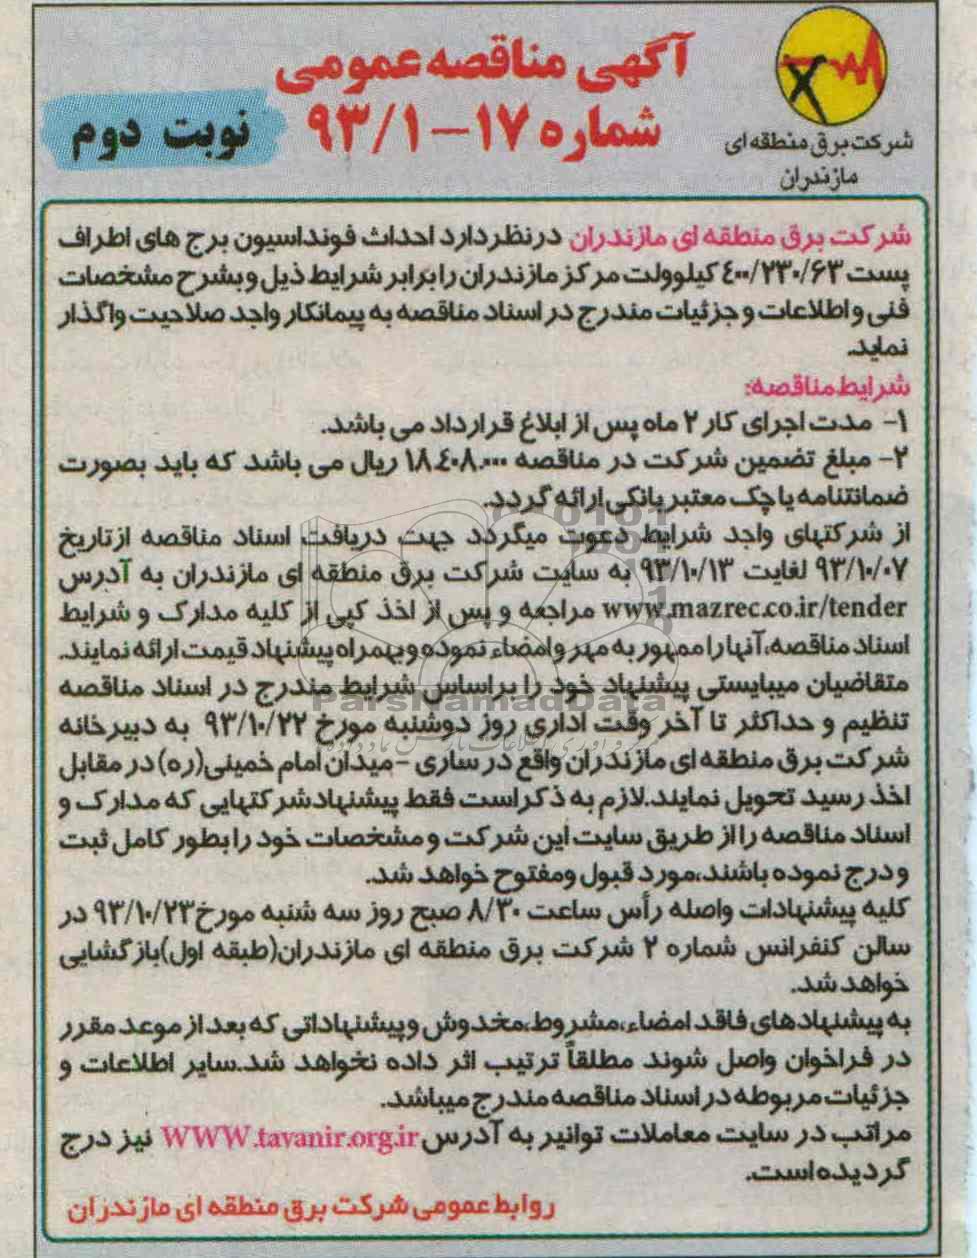 آگهی مناقصه عمومی
شماره ۱۷-۹۳/۱
نوبت دوم
شرکت برق منطقه ای
مازندران
شرکت برق منطقه ای مازندران درنظر دارد احداث فونداسیون برج های اطراف
پست ۴۰۰/۲۳۰/۶۳ کیلوولت مرکز مازندران را برابر شرایط ذیل و بشرح مشخصات
فنی و اطلاعات و جزئیات مندرج در اسناد مناقصه به پیمانکار واجد صلاحیت واگذار
نماید.
شرایط مناقصه:
۱- مدت اجرای کار ۲ ماه پس از ابلاغ قرارداد می باشد.
۲- مبلغ تضمین شرکت در مناقصه ۱۸.۴۰۸.۰۰۰ ریال می باشد که باید بصورت
ضمانتنامه یا چک معتبر بانکی ارائه گردد.
از شرکتهای واجد شرایط دعوت میگردد جهت دریافت اسناد مناقصه ازتاریخ
۹۳/۱۰/۰۷ لغایت ۹۳/۱۰/۱۳ به سایت شرکت برق منطقه ای مازندران به آدرس
www.mazrec.co.ir/tender مراجعه و پس از اخذ کپی از کلیه مدارک و شرایط
اسناد مناقصه، آنها را ممهور به مهر و امضاء نموده و بهمراه پیشنهاد قیمت ارائه نمایند.
متقاضیان میبایستی پیشنهاد خود را براساس شرایط مندرج در اسناد مناقصه
تنظیم و حداکثر تا آخر وقت اداری روز دوشنبه مورخ ۹۳/۱۰/۲۲ به دبیرخانه
شرکت برق منطقه ای مازندران واقع در ساری -میدان امام خمینی(ره) در مقابل
اخذ رسید تحویل نمایند.لازم به ذکر است فقط پیشنهاد شرکتهایی که مدارک و
اسناد مناقصه را از طریق سایت این شرکت و مشخصات خود را بطور کامل ثبت
و درج نموده باشند،مورد قبول ومفتوح خواهد شد.
کلیه پیشنهادات واصله رأس ساعت ۸/۳۰ صبح روز سه شنبه مورخ۹۳/۱۰/۲۳ در
سالن کنفرانس شماره ۲ شرکت برق منطقه ای مازندران(طبقه اول)بازگشایی
خواهد شد.
به پیشنهادهای فاقد امضاء،مشروط،مخدوش و پیشنهاداتی که بعد از موعد مقرر
در فراخوان واصل شوند مطلقاً ترتیب اثر داده نخواهد شد.سایر اطلاعات و
جزئیات مربوطه در اسناد مناقصه مندرج میباشد.
مراتب در سایت معاملات توانیر به آدرس WWW.tavanir.org.ir نیز درج
گردیده است.
روابط عمومی شرکت برق منطقه ای مازندران
ParsNamadData